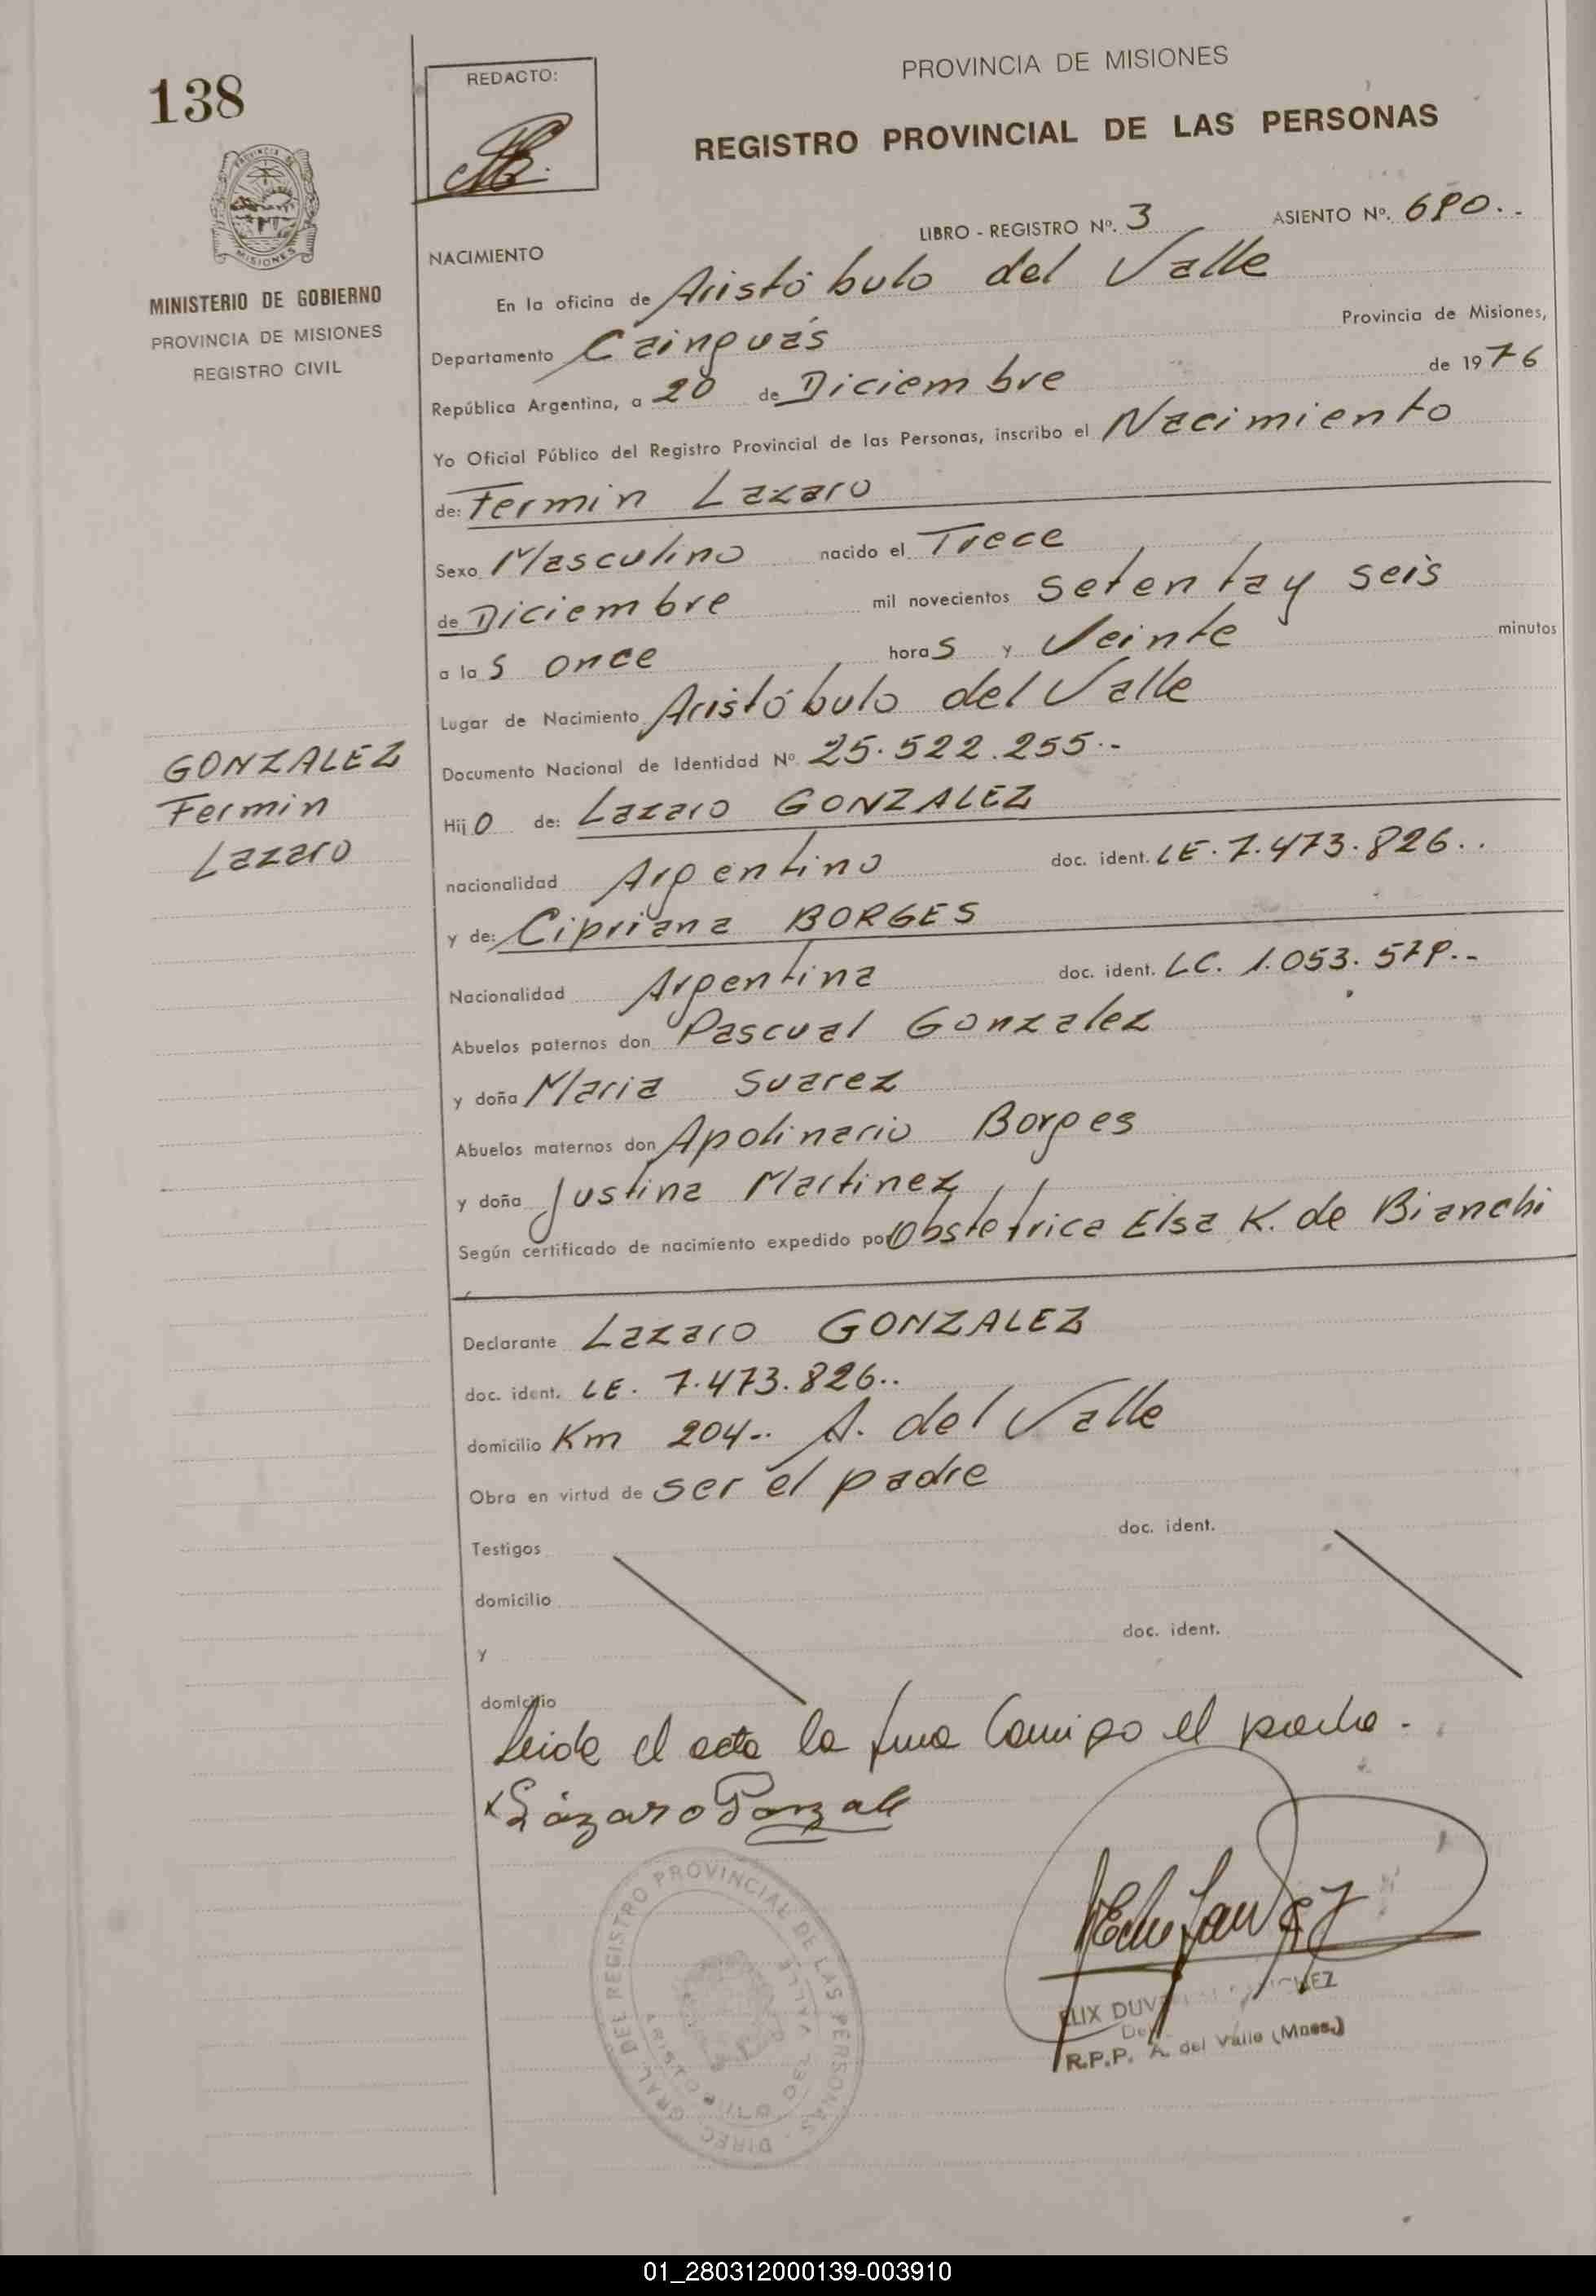 138
REDACTO:
PROVINCIA DE MISIONES
REGISTRO PROVINCIAL DE LAS PERSONAS
PROVINCIA DE MISIONES
MINISTERIO DE GOBIERNO
PROVINCIA DE MISIONES
REGISTRO CIVIL
LIBRO - REGISTRO Nº. 3 ASIENTO Nº. 690..
NACIMIENTO
En la oficina de Aristóbulo del Valle
Departamento Cainguás Provincia de Misiones,
República Argentina, a 20 de Diciembre de 1976
Yo Oficial Público del Registro Provincial de las Personas, inscribo el Nacimiento
de: Fermin Lazaro
Sexo Masculino nacido el Trece
de Diciembre mil novecientos setenta y seis
a las once horas y Veinte minutos
Lugar de Nacimiento Aristóbulo del Valle
Documento Nacional de Identidad Nº 25.522.255.-
GONZALEZ
Fermin
Lazaro
Hijo de: Lazaro GONZALEZ
nacionalidad Argentino doc. ident. LE. 7.473.826..
y de: Cipriana BORGES
Nacionalidad Argentina doc. ident. LC. 1.053.579.-
Abuelos paternos don Pascual Gonzalez
y doña Maria Suarez
Abuelos maternos don Apolinario Borges
y doña Justina Martinez
Según certificado de nacimiento expedido por Obstetrica Elsa K. de Bianchi
Declarante Lazaro GONZALEZ
doc. ident. LE. 7.473.826..
domicilio Km 204.. A. del Valle
Obra en virtud de ser el padre
Testigos doc. ident.
domicilio
y doc. ident.
domicilio
Leida el acta la firma Conmigo el padre.
x Lázaro Gonzale
DIREC. GRAL. DEL REGISTRO PROVINCIAL DE LAS PERSONAS
ARISTOBULO DEL VALLE
R.P.P. A. del Valle (Mnes.)
01_280312000139-003910